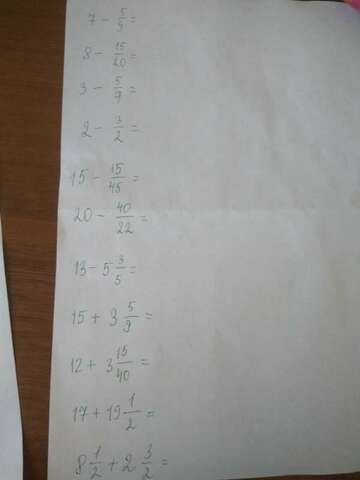 7 - 5/9 =
8 - 15/20 =
3 - 5/9 =
2 - 3/2 =
15 - 15/45 =
20 - 40/22 =
13 - 5 3/5 =
15 + 3 5/9 =
12 + 3 15/40 =
17 + 19 1/2 =
8 1/2 + 2 3/2 =